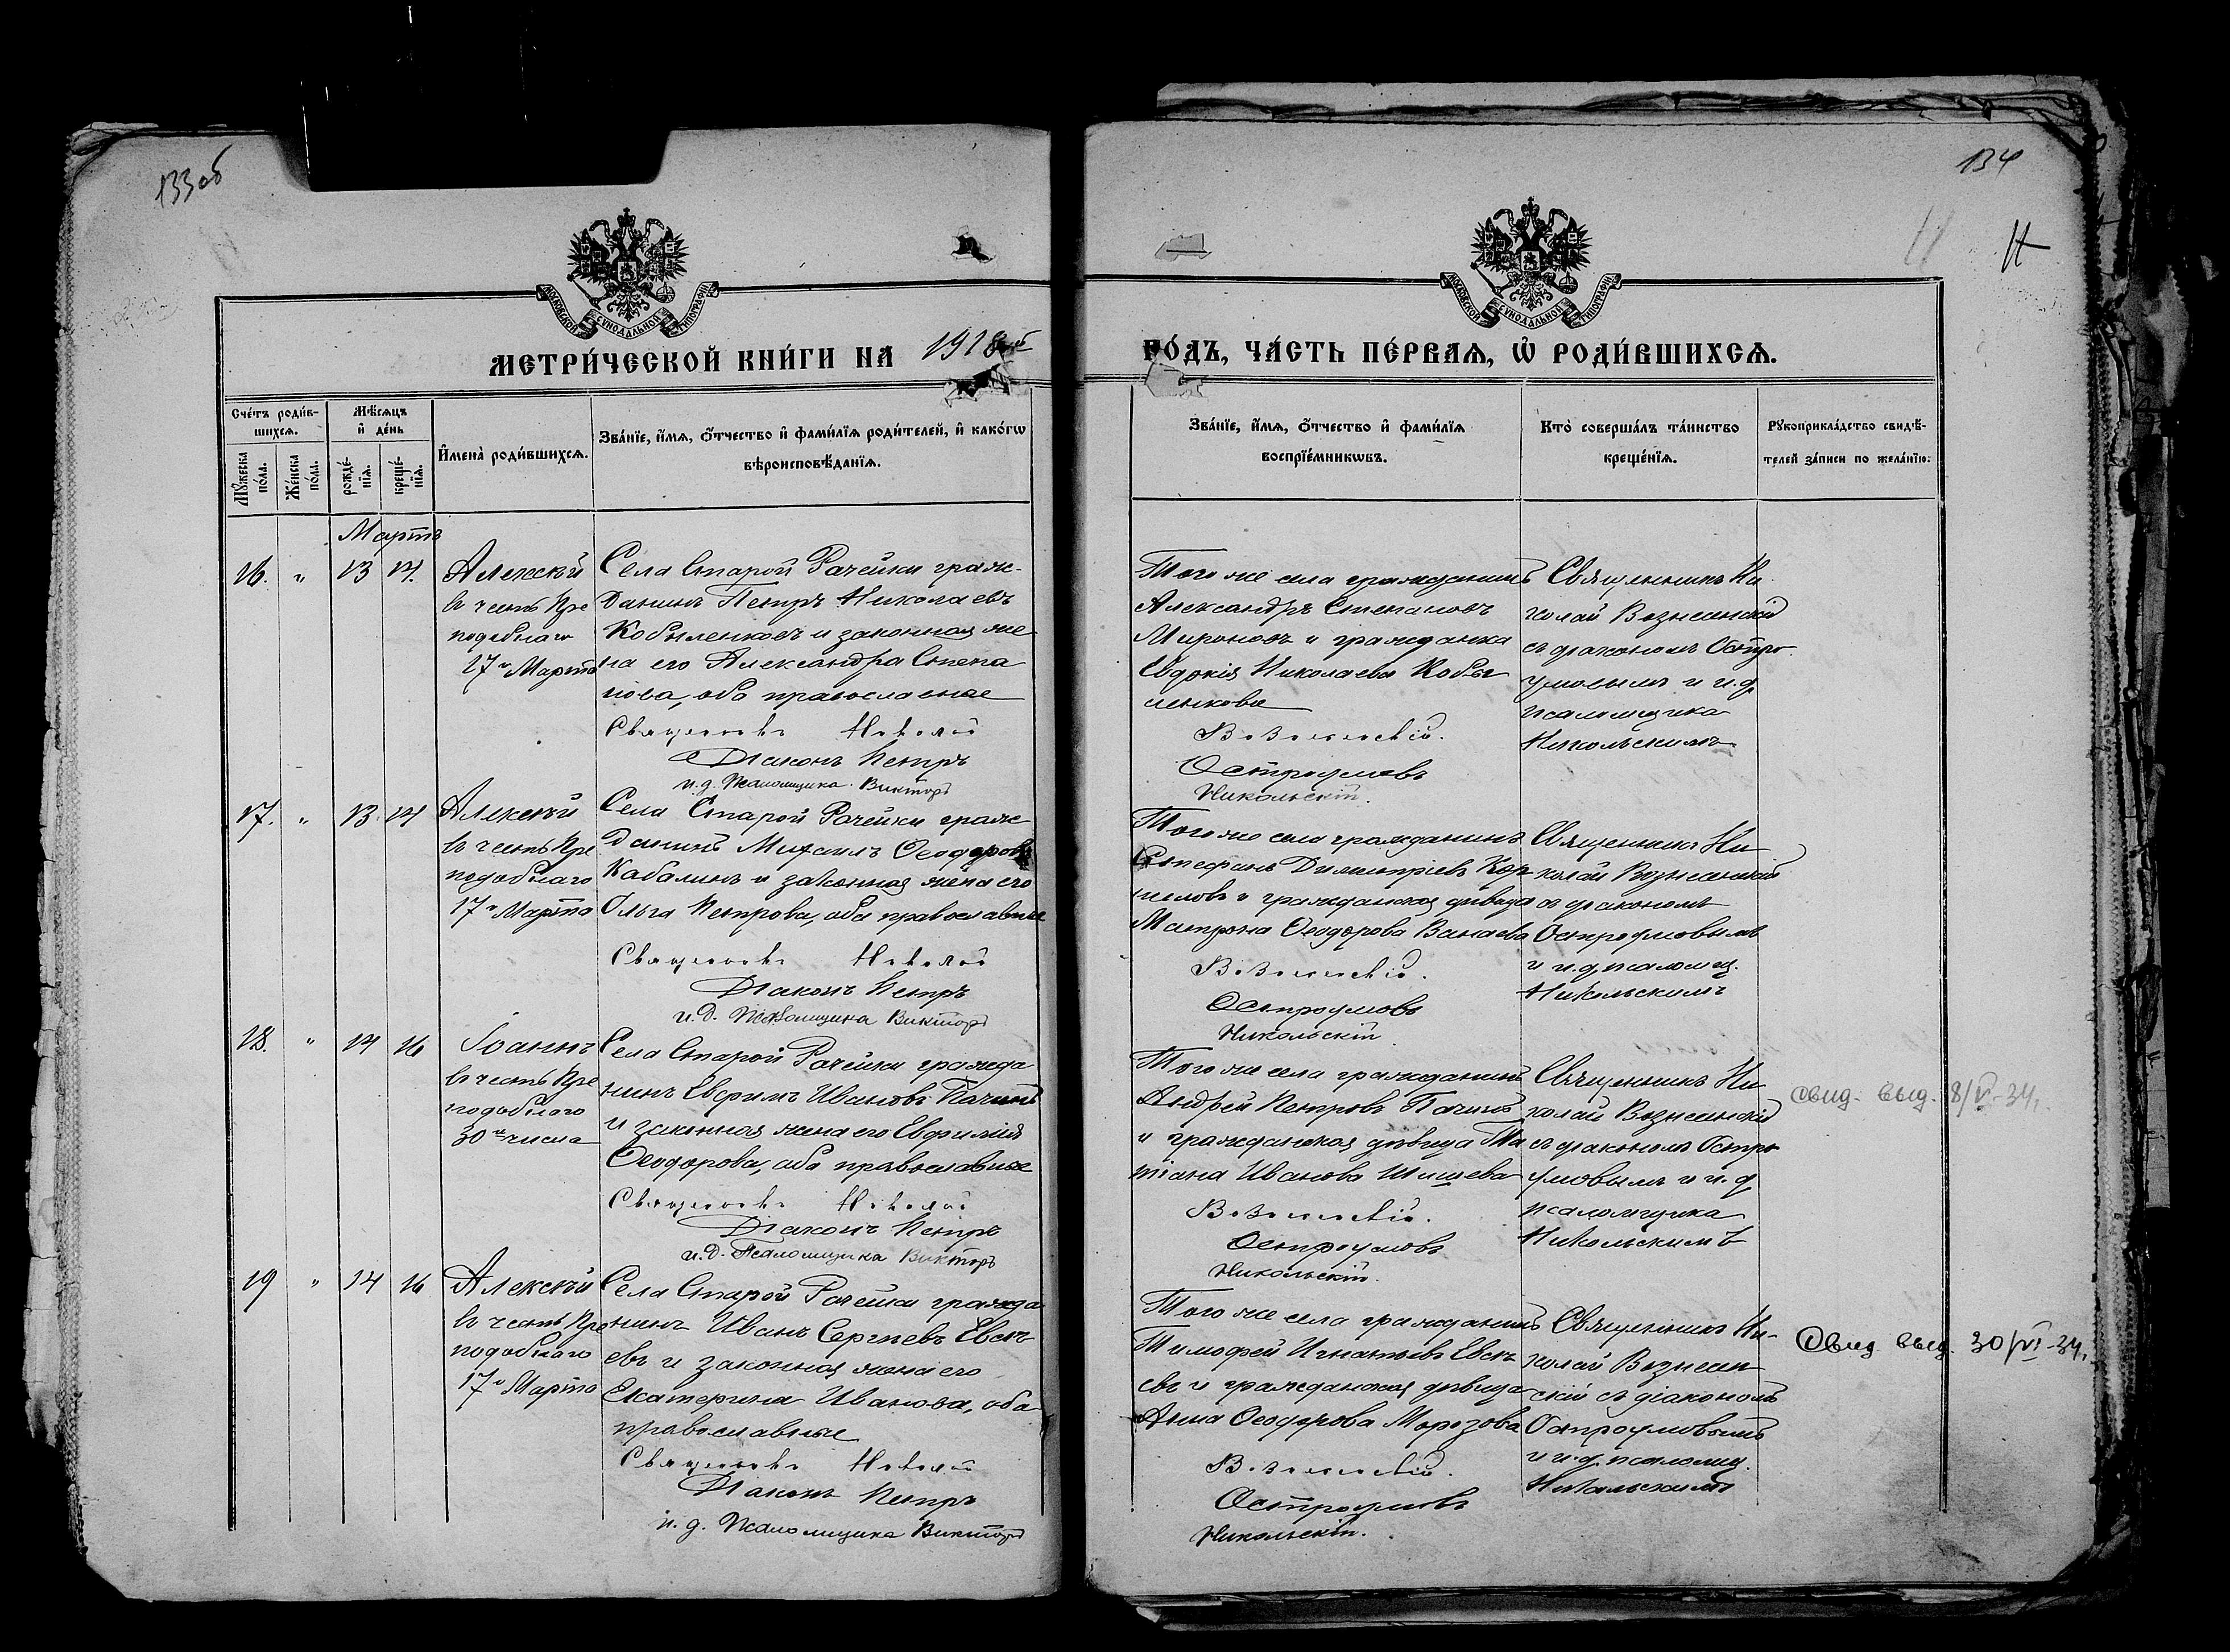 133 об
134
11
МОСКОВСКОЙ СѴНОДАЛЬНОЙ ТИПОГРАФІИ
МОСКОВСКОЙ СѴНОДАЛЬНОЙ ТИПОГРАФІИ
МЕТРИ́ЧЕСКОЙ КНИ́ГИ НА 1918
ГО́ДЪ, ЧА́СТЬ ПЕ́РВАѦ, Ѡ҆ РОДИ́ВШИХСѦ.
Сче́тъ роди́в-
шихсѧ.
Мꙋ́жеска
по́ла.
Же́нска
по́ла.
Мѣ́сѧцъ
и҆ де́нь
рожде́-
нїѧ.
креще́-
нїѧ.
И҆мена̀ роди́вшихсѧ.
Зва́нїе, и҆́мѧ, ѻ҆́тчество и҆ фами́лїѧ роди́телей, и҆ како́гѡ
вѣроисповѣ́данїѧ.
Зва́нїе, и҆́мѧ, ѻ҆́тчество и҆ фами́лїѧ
воспрїе́мникѡвъ.
Кто̀ соверша́лъ та́инство
креще́нїѧ.
Рꙋкоприкла́дство свидѣ́-
телей за́писи по жела́нїю.
Мартъ
16. " 13 14.
Алексѣй
въ честь Пре
подобнаго
17го Марта
Села Старой Рачейки граж-
данинъ Петръ Николаевъ
Кобыленковъ и законная же
на его Александра Степа
нова, оба православные
Священникъ Николай
Діаконъ Петръ
и.д. Псаломщика Викторъ
Того же села гражданинъ
Александръ Степановъ
Мироновъ и гражданка
Евдокія Николаева Кобы
ленкова
Вознесенскій.
Остроумовъ
Никольскій.
Священникъ Ни
колай Вознесенскій
съ діакономъ Остро
умовымъ и и.д.
псаломщика
Никольскимъ
17. " 13. 14
Алексѣй
въ честь Пре
подобнаго
17го Марта
Села Старой Рачейки граж
данинъ Михаилъ Ѳеодоровъ
Кабалинъ и законная жена его
Ольга Петрова, оба православные
Священникъ Николай
Діаконъ Петръ
и.д. Псаломщика Викторъ
Того же села гражданинъ
Стефанъ Димитріевъ Кор
ниловъ и гражданская дѣвица
Матрона Ѳеодорова Ванаева
Вознесенскій.
Остроумовъ
Никольскій
Священникъ Ни
колай Вознесенскій
съ діакономъ
Остроумовымъ
и и.д. псаломщ.
Никольскимъ
18. " 14 16
Іоаннъ
въ честь Пре
подобнаго
30го числа
Села Старой Рачейки гражда
нинъ Евфимъ Ивановъ Пачинъ
и законная жена его Евфимія
Ѳеодорова, оба православные
Священникъ Николай
Діаконъ Петръ
и.д. Псаломщика Викторъ
Того же села гражданинъ
Андрей Петровъ Пачинъ
и гражданская дѣвица Та
тіана Иванова Шишева
Вознесенскій.
Остроумовъ
Никольскій.
Священникъ Ни
колай Вознесенскій
съ діакономъ Остро
умовымъ и и.д
псаломщика
Никольскимъ
Свид. выд. 8/V-34.
19 " 14 16
Алексѣй
въ честь Пре
подобнаго
17го Марта
Села Старой Рачейки гражда
нинъ Иванъ Сергѣевъ Евсѣ-
евъ и законная жена его
Екатерина Иванова, оба
православные
Священникъ Николай
Діаконъ Петръ
и.д. Псаломщика Викторъ
Того же села гражданинъ
Тимофей Игнатьевъ Евсѣ
евъ и гражданская дѣвица
Анна Ѳеодорова Морозова
Вознесенскій.
Остроумовъ
Никольскій.
Священникъ Ни-
колай Вознесен
скій съ діакономъ
Остроумовымъ
и и.д. псаломщ.
Никольскимъ
Свид. выд. 30/VI-34.